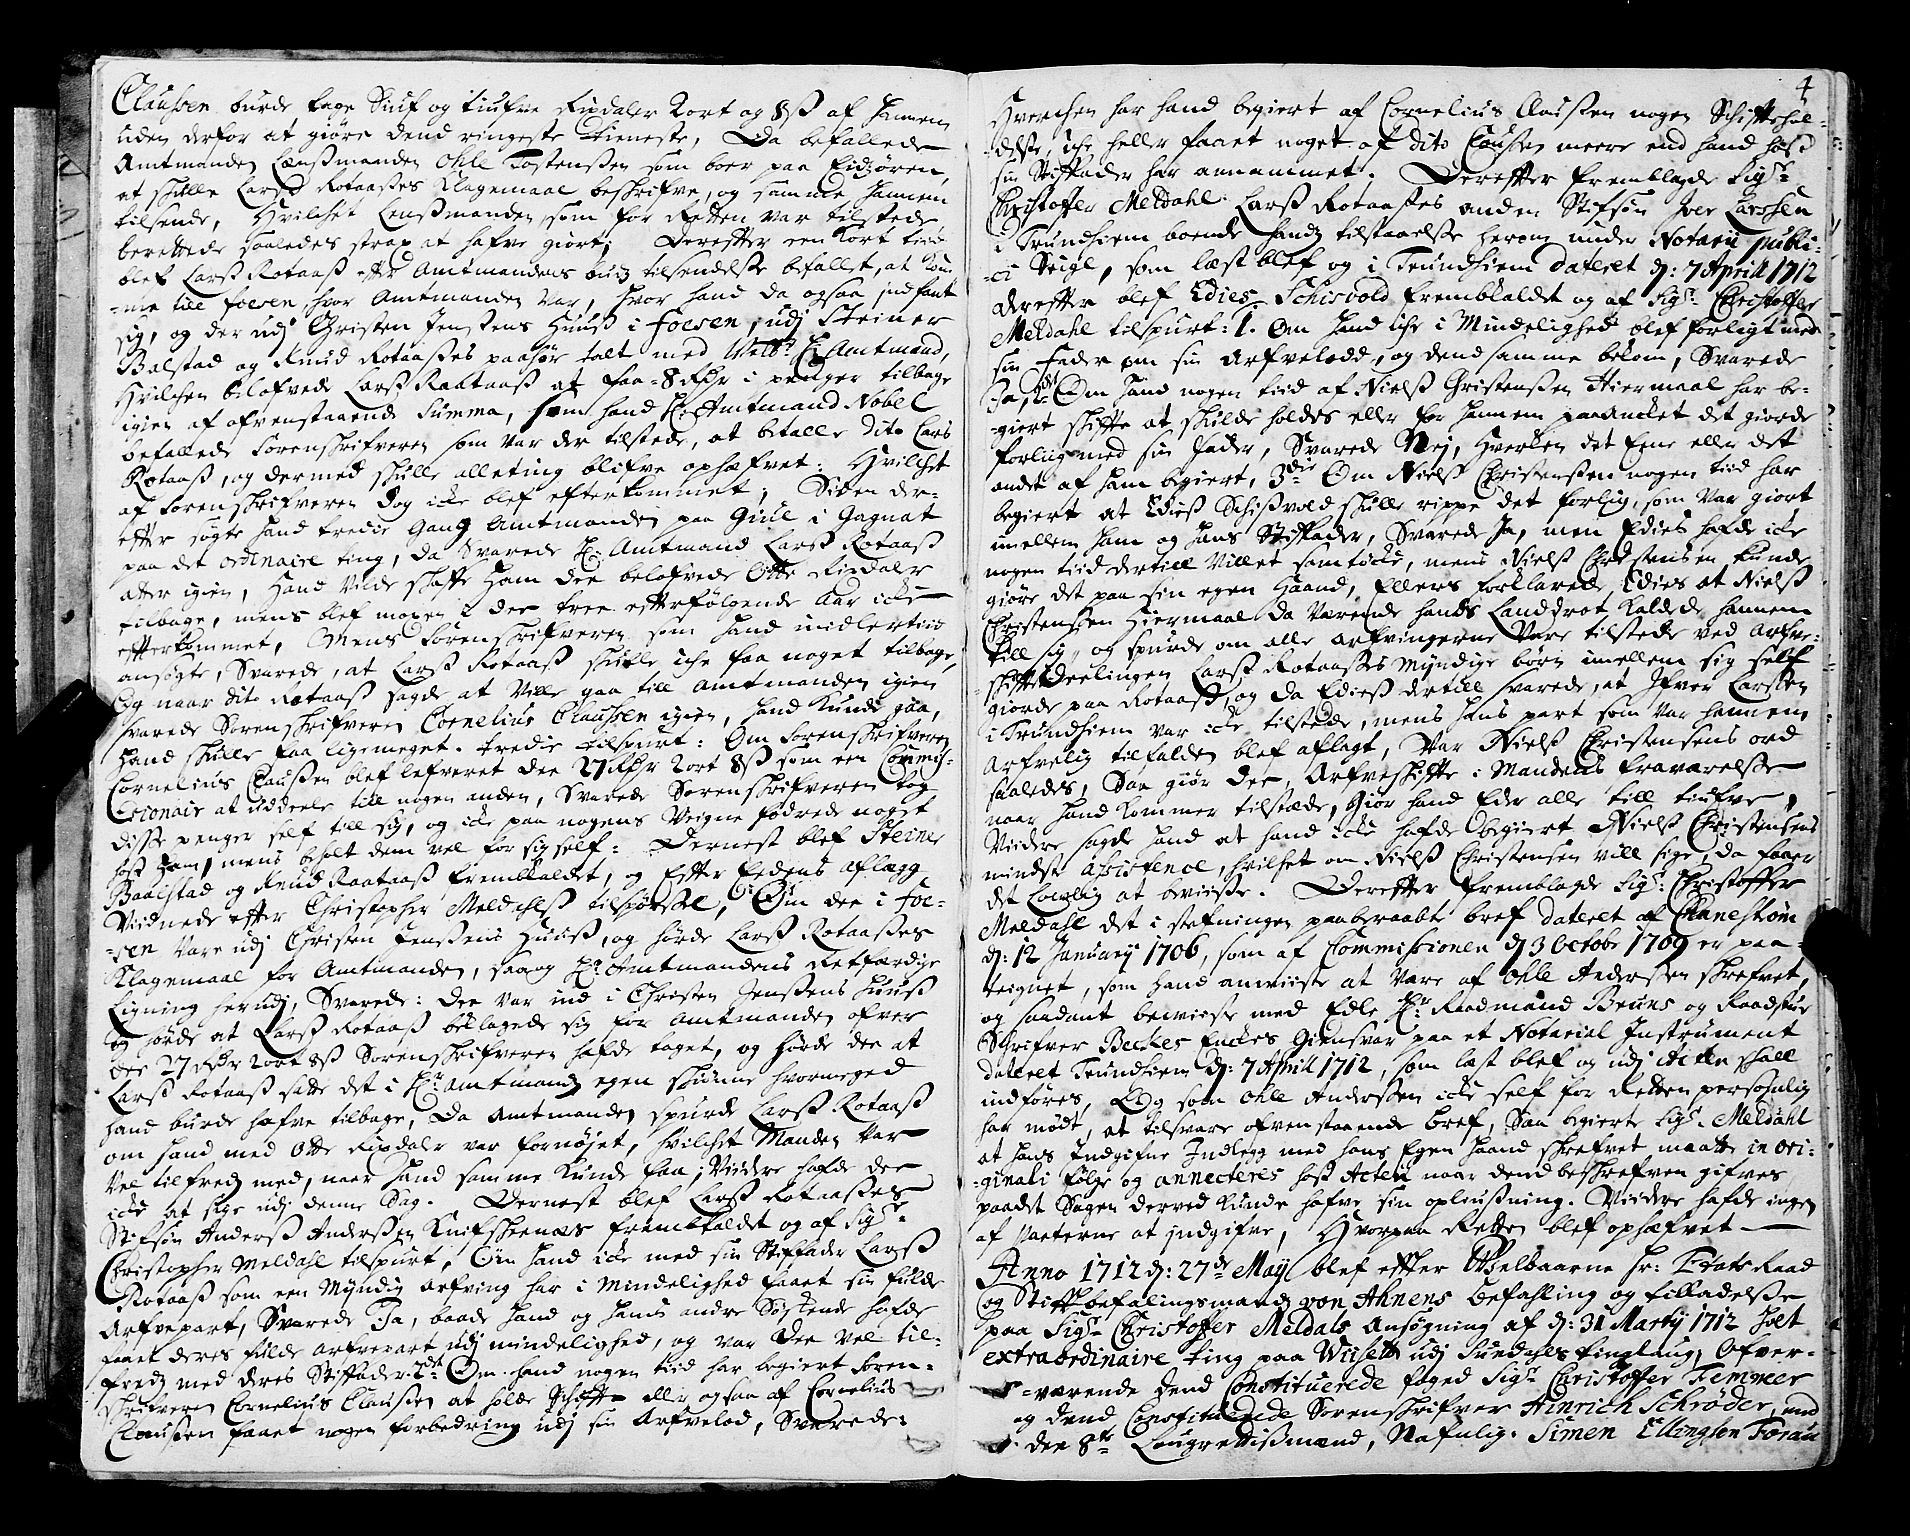 Claussen burde tage Siuf og tiufve Rixdaler 2ort og 8ß af hannem
uden derfor at giøre dend ringeste tieneste, Da befallede
Amtmanden Lænßmanden Ohle Tostenssen som boer paa Eidsøren,
at skulle Larß Rotaasses Klagemaal beskrifve, og samme hannem
tilsende, Hvilchet Lensmanden som for Retten var tilstede
berettede saaledes strax at hafve giort; Derefter een kort tiid
blef Larß Rotaaß efter Amtmandens budz tilsendelse befallet, at kom-
me till Foesen, hvor Amtmanden var, hvor hand da ogsaa indfant
sig, og der udj Christen Jenssens Huuß i Foesen, udj Steiner
Balstad og Knud Rotaasses paahør talt med Welb: Hr Amtmand,
Hvilchen belofvede Larß Raataaß at faa 8 Rdhr i penger tilbage
igien af ofvenstaaende Summa, som hand Hr: Amtmand Nobel
befallede Sorenskrifveren som var der tilstede, at betalle dito Lars
Rotaaß, og dermed skulle alleting blifve ophæfvet: Hvilchet
af Sorenskrifveren dog icke blef efterkommet; Siden der-
efter søgte hand tredie Gang Amtmanden paa Giul i Gagnat
paa det ordinaire ting, da Svarede Hr: Amtmand Larß Rotaaß
atter igien, Hand vilde skaffe ham dee belofvede Otte Rixdaler
tilbage, mens blef moxen i dee tree efterfølgende Aar icke
efterkommet, Mens Sorenskrifveren som hand midlertiid
ansøgte, Svarede, at Larß Rotaaß skulle iche faa noget tilbage,
Og naar dito Rotaaß sagde at ville gaa till Amtmanden igien
svarede Sorenskrifveren Cornelius Claussen igien, hand kunde gaa,
Hand skulle faa ligemeget. Tredie tilspurt: Om Sorenskrifveren
Cornelius Claussen blef lefveret dee 27 Rdhr 2ort 8ß som een Commis-
sionair at uddeele till nogen anden, Svarede Sorenskrifveren tog
disse penger self till sig, og icke paa nogens Veigne fodrede noget
hoß ham, mens beholt dem vel for sig self: Dernest blef Steiner
Baalstad og Knud Raataaß fremkaldet, og Efter Eedens aflæg
Vidnede efter Christopher Meldahlß tilspørsel, Om dee i Foe-
sen Vare udj Christen Jenssens Huuß, og hørde Larß Rotaasses
Klagemaal for Amtmanden, saa og Hr: Amtmandens Retfærdige
Ligning herudj, Svarede: dee var ind i Christen Jenssens Huuß
og hørde at Larß Rotaaß beklagede sig for Amtmanden ofver
dee 27 Rdhr 2ort 8ß Sorenskrifveren hafde taget, og hørde dee at
Larß Rotaaß satte det i Hr Amtmandz egen skiønne hvormeged
hand burde hafve tilbage, Da Amtmanden spurde Larß Rotaaß
om hand med Otte Rixdaler var fornøjet, hvilchet Manden var
vel tilfredz med, naar hand samme kunde faa; Videre hafde dee
icke at sige udj denne Sag. Dernest blef Larß Rotaasses
Stifsøn Anderß Anderssen Knifskenæs fremkaldet og af Sigr
Christopher Meldahl tilspurt, Om hand icke med sin Stiffader Larß
Rotaaß som een Myndig Arfving har i Mindelighed faaet sin fulde
Arfvepart, Svarede Ja, baade hand og hans andre Søskende hafde
faaet deres fulde arfvepart udj mindelighed, og var dee vel til-
fredz med deres Stiffader. 2det Om hand nogen tiid har begiert Soren-
skriveren Cornelius Claussen at holde Schifte eller ogsaa af Cornelius
Claussen faaet nogen forbedring udj sin Arfvelod, Svarede:
4
Hverchen har hand begiert af Cornelius Claussen nogen Schiftehol-
delse, iche heller faaet noget af dito Clausen meere end hand hoß
sin Stiffader har annammet. Derefter fremblagde Sigr
Christoffer Meldahl Larß Rotaasses anden Stifsøn Iver Larssen
i Trundhiem boende hans tilstaaelse herom under Notarij publi-
ci Seigl, som læst blef og i Trundhiem dateret d: 7 Aprill 1712
derefter blef Edies Schisvold fremkaldet og af Sigr Christoffer
Meldahl tilspurt: 1. Om hand iche i Mindelighed blef forligt med
sin fader om sin arfvelodd, og dend samme bekom, Svarede
Ja, 2det Om hand nogen tiid af Nielß Christenssen Hiermaal har be-
giert skifte at skulde holdes eller for hannem paaancket det giorde
forliig med sin fader, Svarede Nej, Hverken det Eene eller det
andet af ham begiert, 3die Om Nielß Christenssen nogen tiid har
begiert at Edieß Schißvold skulle rippe det forlig, som var giort
imellem ham og hans Stiffader, Svarede Ja, men Edies hafde icke
nogen tiid dertill villet samtöcke, mens Nielß Christensen kunde
giøre det paa sin egen Haand, Ellers forklarede Edies at Nielß
Christenssen Hiermaal da værende hands Landdrot kaldede hannem
till sig, og spurde om alle arfvingerne Vare tilstede ved Arfve-
skiftedeelingen Larß Rotaasses Myndige børn imellem sig self
giorde paa Rotaaß, og da Edieß dertill svarede, at Ifver Larssen
i Trundhiem var icke tilstede, mens hans part som var hannem
Arfvelig tilfalden blef aflagt, Var Nielß Christensens ord
saaledes, Saa giør dee Arfveskifte i Mandens fraværelse
naar hand kommer tilstæde, Giør hand Eder alle till tiufve,
Videre sagde hand at hand icke hafde begiert Nielß Christensens
mindste assistence, hvilchet om Nielß Christensen vill sige, da faaer
det Lovlig at bevieße. Derefter fremblagde Sigr: Christoffer
Meldahl det i stefningen paaberaabte bref dateret af Chanestøm
d: 12 January 1706, som af Commissionen d 3 Octobr 1709 er paa-
teignet, som hand anviste at være af Ohle Anderssen skrefvet,
og saadant beviiste med Edle Hr: Raadmand Bruns og Raadstue
Schrifver Beckes Enckes Giensvar paa et Notarial Instrument
dateret Trundhiem d: 7 Aprill 1712, som læst blef og udj Acten skall
indføres, Og som Ohle Anderssen icke self for Retten personlig
har mødt, at tilsvare ofvenstaaende bref, Saa begierte Sigr. Meldahl
at hans Indgifne Indlegg med hans Egen haand skrefvet maatte in ori-
ginali følge og annecteres hoß Acten naar dend beskrefven gifves
paadt Sagen derved kunde hafve sin opliußning. Videre hafde ingen
af Parterne at indgifve, Hvorpaa Retten blef ophæfvet
Anno 1712 d: 27de May blef efter Welbaarne Hr: Etats Raad
og Stiftbefalingsmand von Ahnens Befahling og tilladelse
paa Sigr Christoffer Meldals Ansøgning af d: 31 Marty 1712 holt
extraordinaire ting paa Wiisett udj Sundahls tinglaug, Ofver-
værende dend Constituerede foged Sigr Christoffer Femmer
og dend Constituerede Sorenskrifver Hinrich Schrøder, med
dee 8te Laugrettißmænd, Nafnlig. Simen Ellingsen Foraa